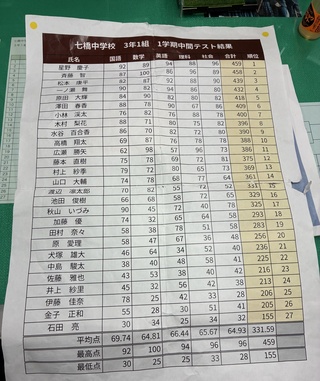 七橋中学校 3年1組 1学期中間テスト結果
氏名 国語 数学 英語 理科 社会 合計 順位
星野 慶子 92 89 94 88 96 459 1
斉藤 智 87 100 86 89 96 458 2
松本 康平 82 87 92 88 90 439 3
一ノ瀬 舞 90 82 94 86 80 432 4
原田 大輝 84 90 82 80 82 418 5
澤田 春香 88 78 90 67 86 409 6
小林 渓太 76 88 82 78 76 400 7
木村 梨花 88 71 80 75 82 396 8
水谷 百合香 86 70 82 72 80 390 9
高橋 翔太 69 87 76 78 78 388 10
広瀬 勝矢 62 98 57 96 73 386 11
藤本 直樹 75 78 375 12
村上 紗季 79 72 80 65 73 369 13
山口 大輔 74 78 68 77 64 361 14
渡辺 凛太郎 70 82 55 72 52 331 15
池田 俊樹 66 68 58 72 65 329 16
秋山 いづみ 90 45 72 40 78 325 17
加藤 優 74 32 65 64 58 293 18
田村 奈々 58 38 78 51 58 283 19
原 愛理 58 47 67 36 48 256 20
犬塚 雄大 46 64 34 52 40 236 21
中島 駿太 38 40 48 58 41 225 22
佐藤 雅也 43 53 38 40 42 216 23
井上 紗里 45 32 56 42 38 213 24
伊藤 佳奈 78 25 42 33 28 206 25
金子 正和 55 28 30 51 41 205 26
石田 亮 30 34 25 34 32 155 27
平均点 69.74 64.81 66.44 65.67 64.93 331.59
最高点 92 100 94 96 96 459
最低点 30 25 25 33 28 155